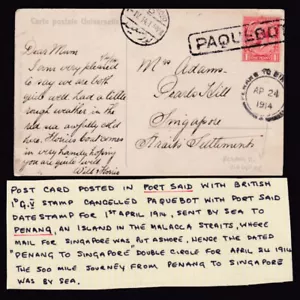 Carte postale Universelle
PAQUEBOT
Dear Mum
I am very pleased
to say we are both
quite well had a little
rough weather in the
red sea awfully cold
here. Florrie boat comes
in very handy hoping
you are quite well
Will & Florrie
Mrs Adams.
Pearls Hill
Singapore
Straits Settlements
PENANG TO
AP 24
1914
POST CARD POSTED IN PORT SAID WITH BRITISH
1D G.V STAMP CANCELLED PAQUEBOT WITH PORT SAID
DATESTAMP FOR 1ST APRIL 1914, SENT BY SEA TO
PENANG, AN ISLAND IN THE MALACCA STRAITS, WHERE
MAIL FOR SINGAPORE WAS PUT ASHORE, HENCE THE DATED
"PENANG TO SINGAPORE" DOUBLE CIRCLE FOR APRIL 24 1914
THE 500 MILE JOURNEY FROM PENANG TO SINGAPORE
WAS BY SEA.